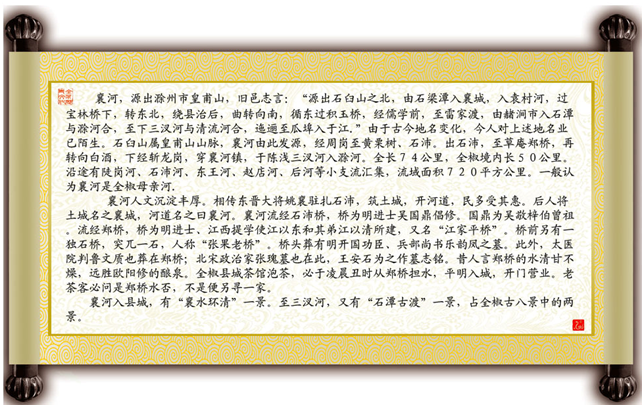 襄河，源出滁州市皇甫山，旧邑志言：“源出石臼山之北，由石梁潭入襄城，入袁村河，过
宝林桥下，转东北，绕县治后，曲转向南，循东过积玉桥，经儒学前，至雷家渡，由赭涧市入石潭
与滁河合，至下三汊河与清流河合，迤逦至瓜埠入于江.”由于古今地名变化，今人对上述地名业
已陌生。石臼山属皇甫山山脉，襄河由此发源，经周岗至黄栗树、石沛。出石沛，至草庵郑桥，再
转向白酒，下经斩龙岗，穿襄河镇，于陈浅三汊河入滁河。全长７４公里，全椒境内长５０公里。
沿途有陡岗河、石沛河、东王河、赵店河、后河等小支流汇集，流域面积７２０平方公里。一般认
为襄河是全椒母亲河.
襄河人文沉淀丰厚。相传东晋大将姚襄驻扎石沛，筑土城，开河道，民多受其惠。后人将
土城名之襄城，河道名之曰襄河。襄河流经石沛桥，桥为明进士吴国鼎倡修。国鼎为吴敬梓伯曾祖
。流经郑桥，桥为明进士、江西提学使江以东和其弟江以清所建，又名“江家平桥”。桥前另有一
独石桥，突兀一石，人称“张果老桥”。桥头葬有明开国功臣、兵部尚书乐韵凤之墓。此外，太医
院判鲁文质也葬在郑桥；北宋政治家张瑰墓也在此，王安石为之作墓志铭。昔人言郑桥的水清甘不
燥，远胜欧阳修的酿泉，全椒县城茶馆泡茶，必于凌晨丑时从郑桥担水，平明入城，开门营业。老
茶客必问是郑桥水否，不是便另寻一家。
襄河入县城，有“襄水环清”一景。至三汊河，又有“石潭古渡”一景，占全椒古八景中的两
景。